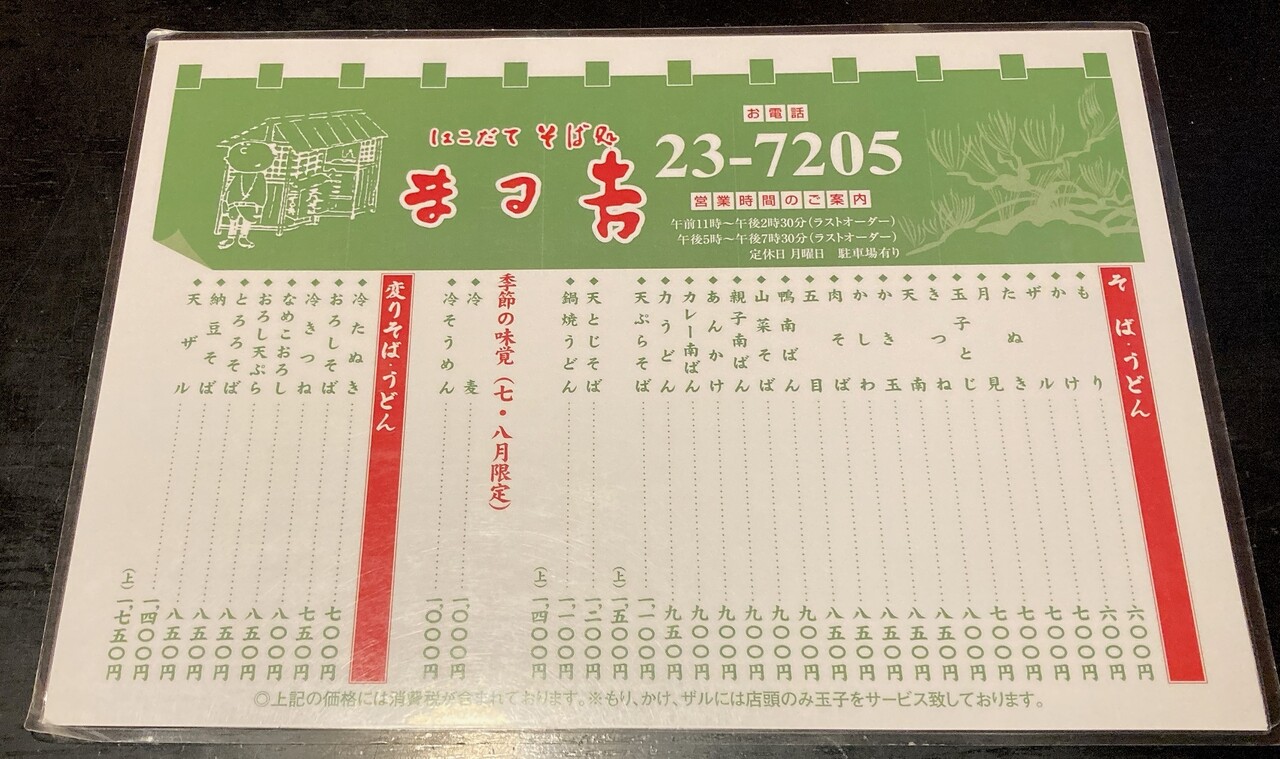 はこだて そば処
まる吉
お電話
23-7205
営業時間のご案内
午前11時〜午後2時30分(ラストオーダー)
午後5時〜午後7時30分(ラストオーダー)
定休日 月曜日 駐車場有り
そば・うどん
◆もり 六〇〇円
◆かけ 六〇〇円
◆ザル 七〇〇円
◆たぬき 七〇〇円
◆月見 七〇〇円
◆玉子とじ 八〇〇円
◆きつね 八五〇円
◆天南 八五〇円
◆かき玉 八五〇円
◆かしわ 八五〇円
◆肉そば 八五〇円
◆五目 九〇〇円
◆鴨南ばん 九〇〇円
◆山菜そば 九〇〇円
◆親子南ばん 九〇〇円
◆あんかけ 九〇〇円
◆カレー南ばん 九〇〇円
◆力うどん 九五〇円
◆天ぷらそば 一、一〇〇円
(上)一、五〇〇円
◆天とじそば 一、二〇〇円
◆鍋焼うどん 一、一〇〇円
(上)一、四〇〇円
季節の味覚(七・八月限定)
◆冷麦 一、〇〇〇円
◆冷そうめん 一、〇〇〇円
変りそば・うどん
◆冷たぬき 七〇〇円
◆おろしそば 七五〇円
◆冷きつね 八〇〇円
◆なめこおろし 八五〇円
◆おろし天ぷら 八五〇円
◆とろろそば 八五〇円
◆納豆そば 八五〇円
◆天ザル 一、四〇〇円
(上)一、七五〇円
◎上記の価格には消費税が含まれております。※もり、かけ、ザルには店頭のみ玉子をサービス致しております。